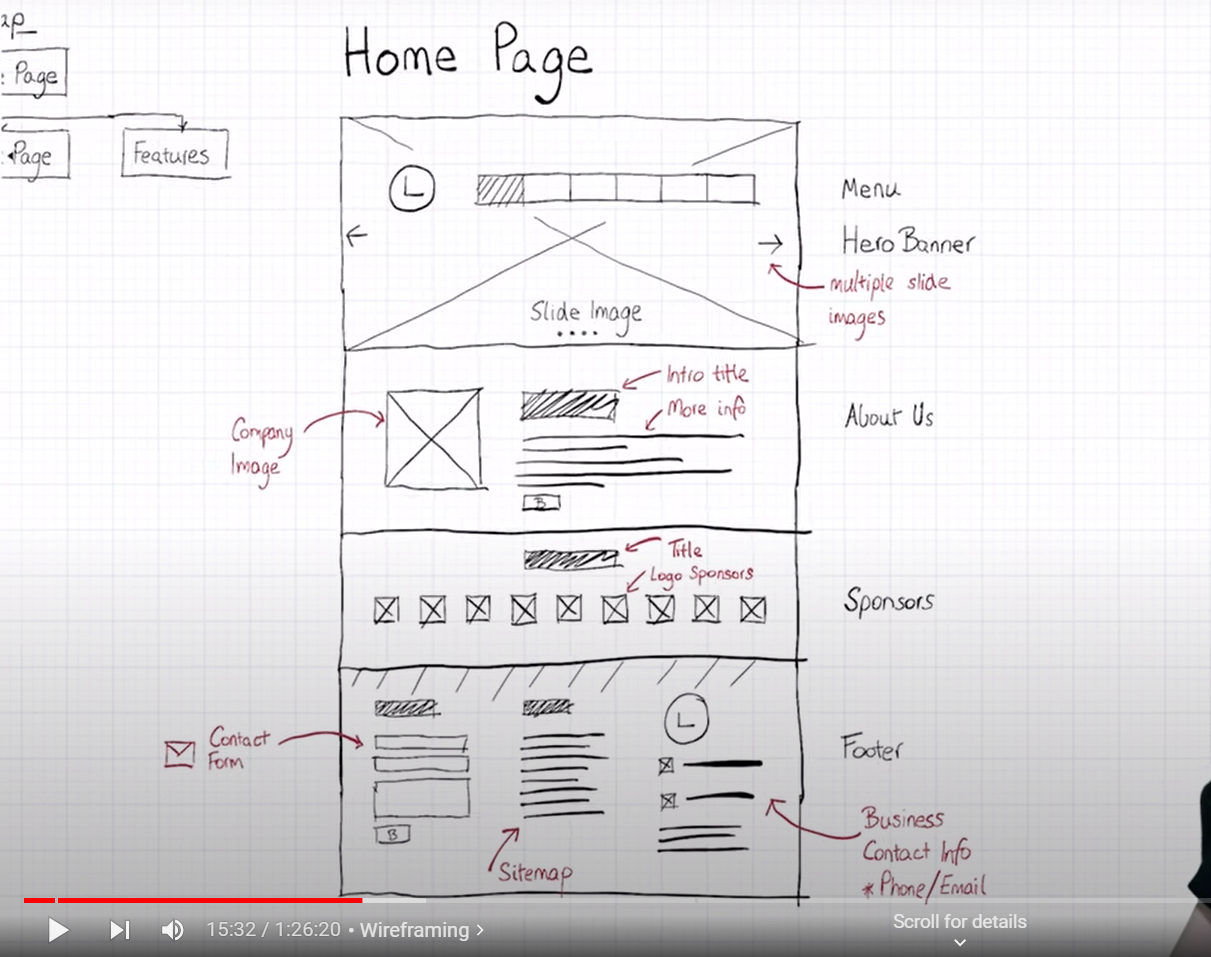 Home Page
: Page
Page
Features
L
Menu
Hero Banner
multiple slide
images
Slide Image
Intro title
More info
About Us
Company
Image
B
Title
Logo Sponsors
Sponsors
L
Contact
Form
Footer
B
Business
Contact Info
* Phone/Email
Sitemap
15:32 / 1:26:20 • Wireframing >
Scroll for details